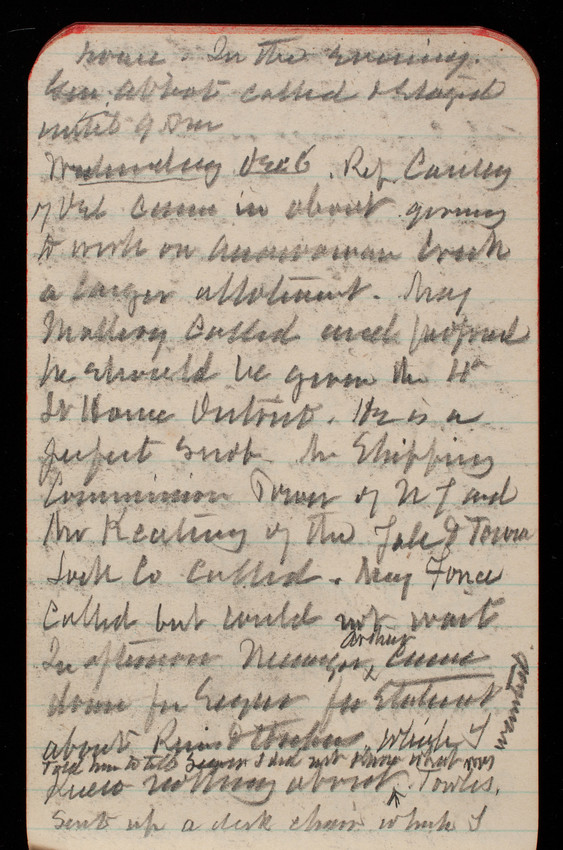 house. In the evening.
Gen. Abbot called & staid
until 9 Pm
Wednesday Dec 6. Rep Causey
of Del came in about giving
to work on creek
a larger allotment. Maj
Mallery called and
he should be given the 4th
Lt House District. He is a
perfect snob. The Shipping
Commission Tower of N Y and
Mr Keating of the Yale & Towne
Lock Co called. Maj
called but could not wait
In afternoon came
Arthur
down for for statement
about which I
wanted
Told him to tell I did not know what was
Knew nothing about. Towles,
Sent up a desk chair which I